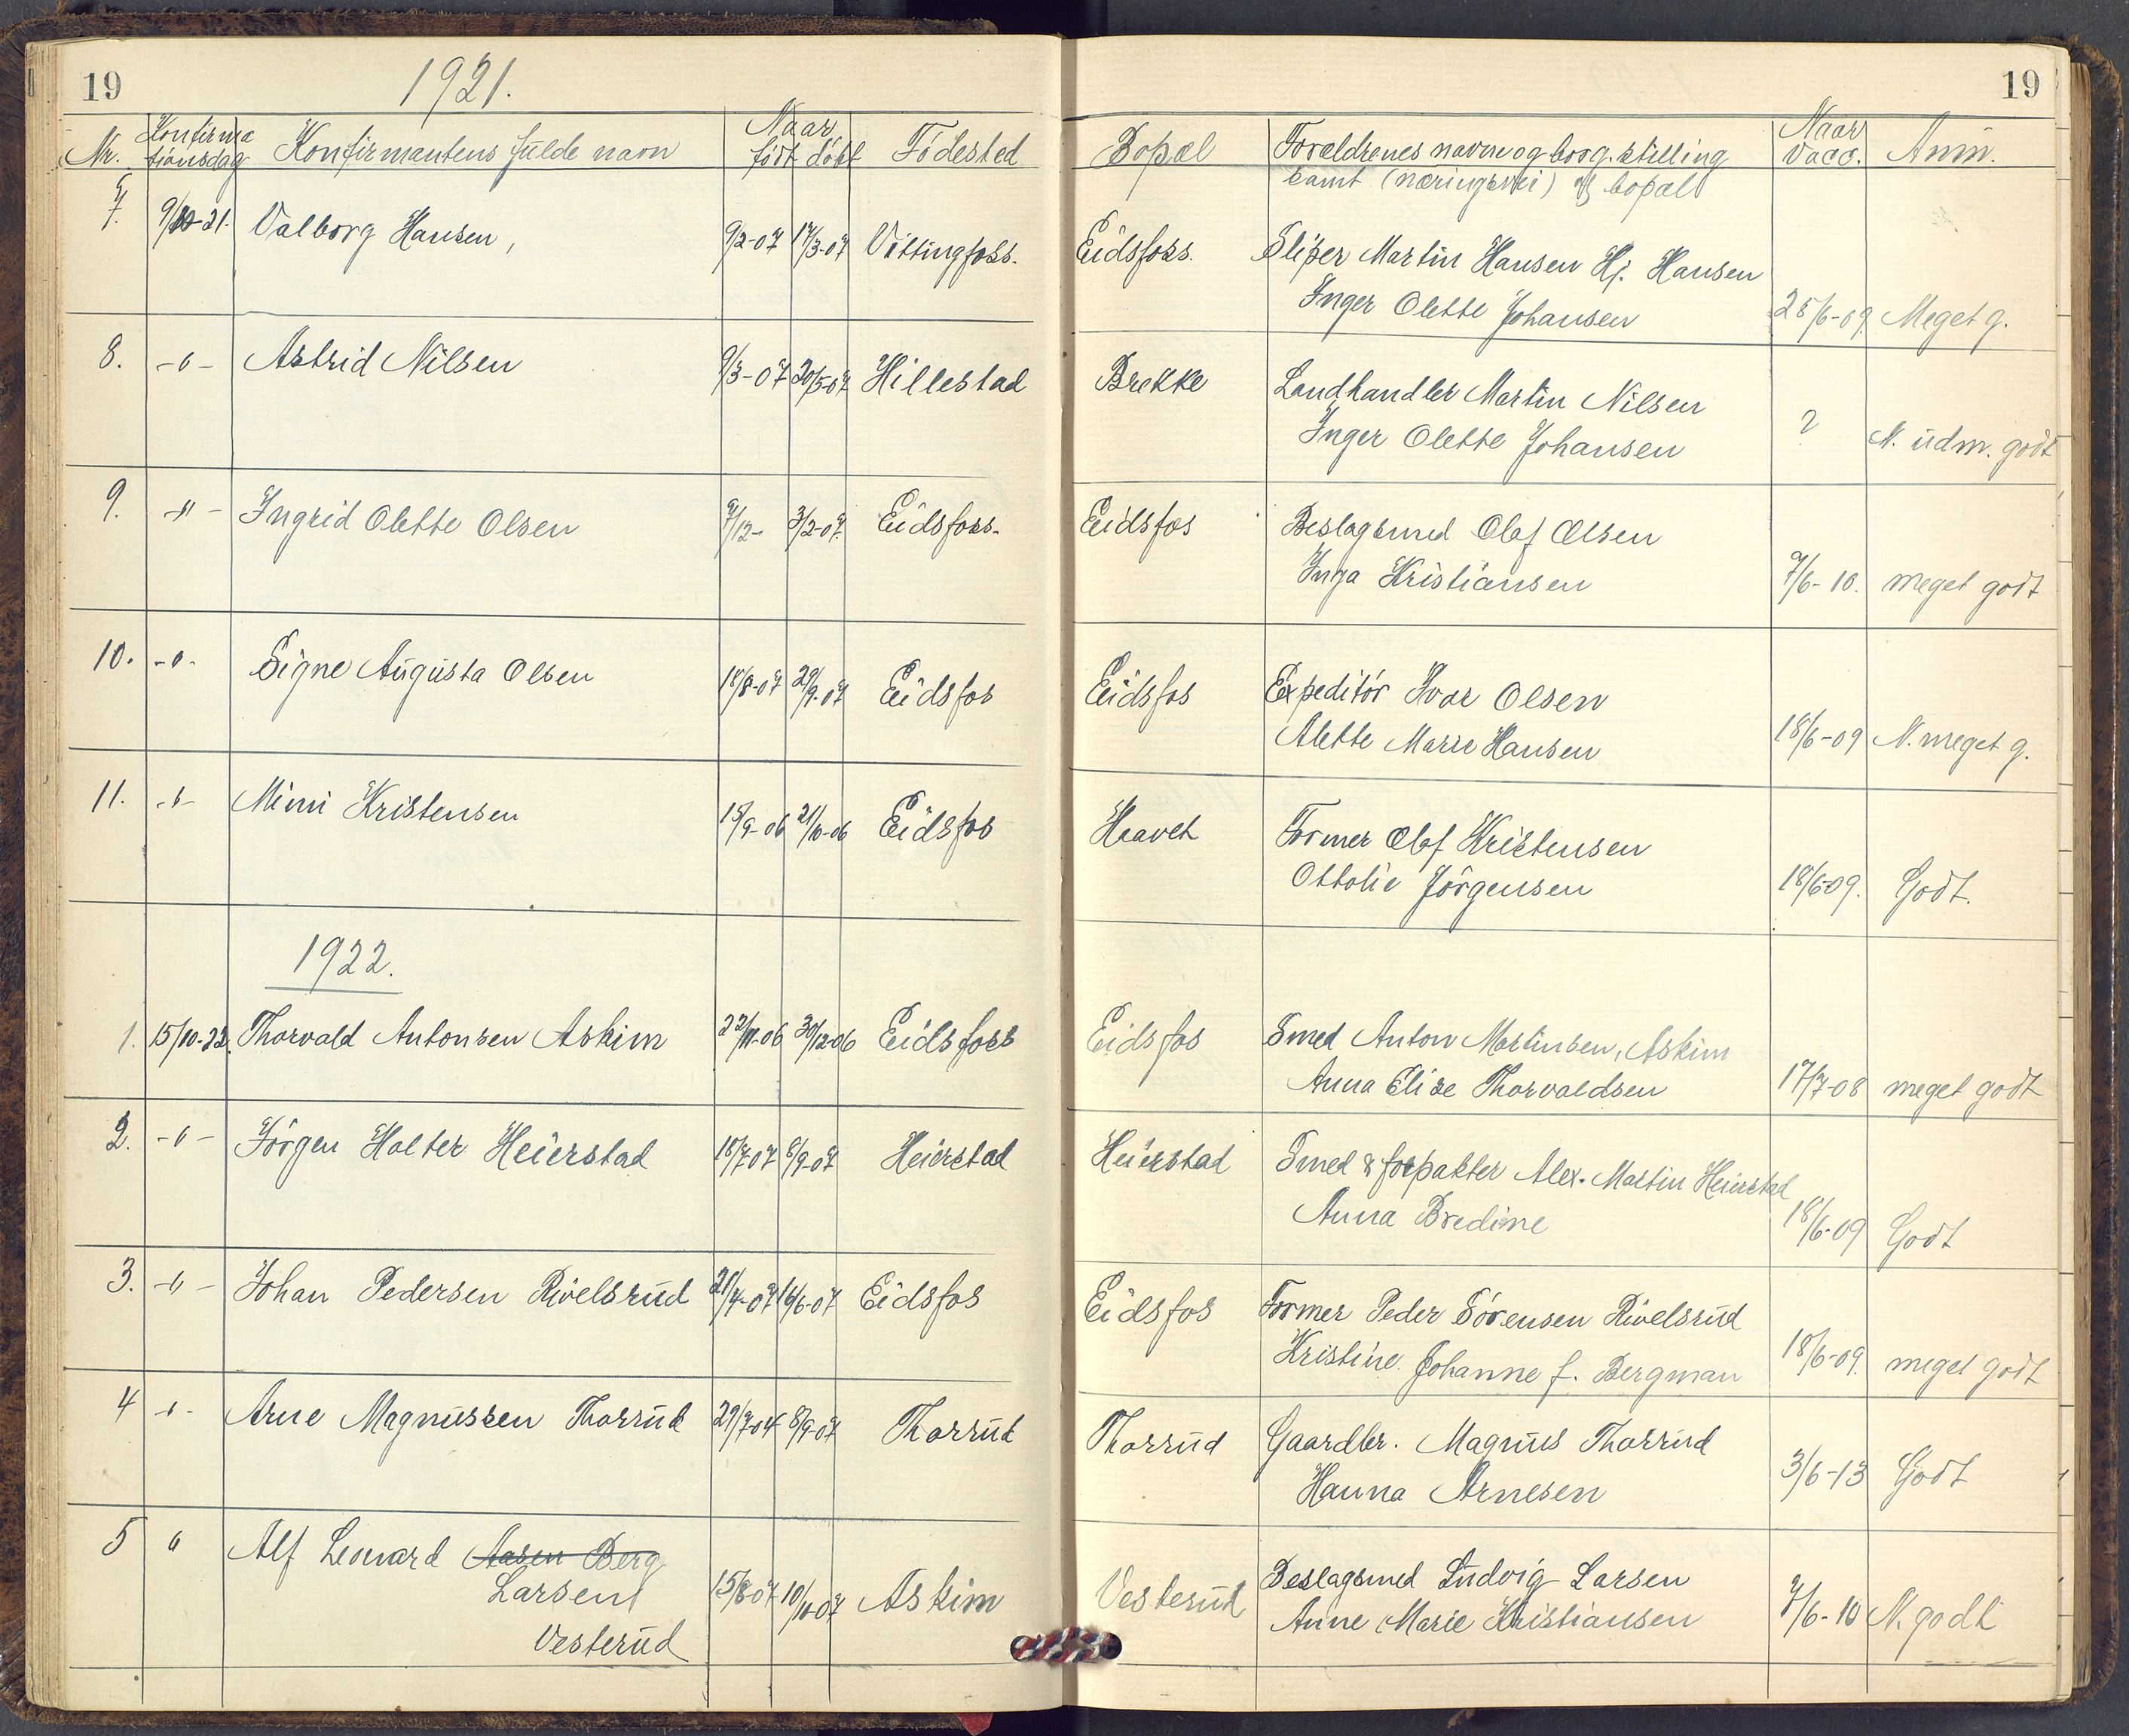 19 1921. 19
Nr. Konfirma tionsdag Konfirmantens fulde navn Naar født døbt Födested Bopæl Foreldrenes navne og borg. stilling Naar Vacc. Anm.
samt (næringsvei) og bopæl
7. 9/10-21. Valborg Hansen, 9/2-07 17/3-07 Vittingfoss. Eidsfoss. Sliper Martin Hansen Hj. Hansen
Inger Olette Johansen 25/6-09 Meget g.
8. -"- Astrid Nilsen 9/3-07 20/5-07 Hillestad Brekke Landhandler Martin Nilsen
Inger Olette Johansen ? N. udm. godt
9. -"- Ingrid Olette Olsen 7/12- 3/2-07. Eidsfoss. Eidsfos Beslagsmed Olaf Olsen
Inga Kristiansen 7/6-10. meget godt
10. -"- Signe Augusta Olsen 18/8-07 29/9-07 Eidsfos Eidsfos Expeditör Ivar Olsen
Alette Marie Hansen 18/6-09 N. meget g.
11. -"- Mimi Kristensen 15/9-06 21/10-06 Eidsfos Haavet Former Olaf Kristensen
Ottolie Jörgensen 18/6-09. Godt.
1922.
1. 15/10-22. Thorvald Antonsen Askim 22/11-06 30/12-06 Eidsfoss Eidsfos Smed Anton Martinsen, Askim
Anna Elise Thorvaldsen 17/7-08 meget godt
2. -"- Jörgen Holter Heierstad 18/7-07 8/9-07 Heierstad Heierstad Smed & forpakter Alex. Martin Heierstad
Anna Bredine 18/6-09 Godt
3. -"- Johan Pedersen Rivelsrud 21/4-07 16/6-07 Eidsfos Eidsfos Former Peder Sörensen Rivelsrud
Kristine Johanne f. Bergman 18/6-09. meget godt
4 -"- Arne Magnussen Thorrud 29/7-07 8/9-07 Thorrud Thorrud Gaardbr. Magnus Thorrud
Hanna Arnesen 3/6-13 Godt
5 " Alf Leonard Aasen Berg
Larsen
Vesterud 15/8-07 10/11-07 Askim Vesterud Beslagsmed Ludvig Larsen
Anne Marie Kristiansen 7/6-10 N. godt